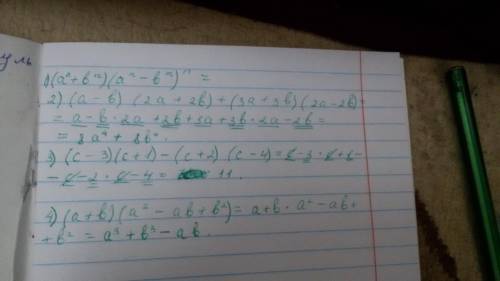 уль
1) (aⁿ+bⁿ)(aⁿ-bⁿ)ⁿ =
2) (a-b) (2a+2b)+(3a+3b)(2a-2b)=
= a-b·2a+2b+3a+3b·2a-2b=
= 8a²+8b².
3) (c-3)(c+1)-(c+2)(c-4)=c-3·c+1-
-c-2·c-4= 11.
4) (a+b)(a²-ab+b²)=a+b·a²-ab+
+b²=a³+b³-ab.